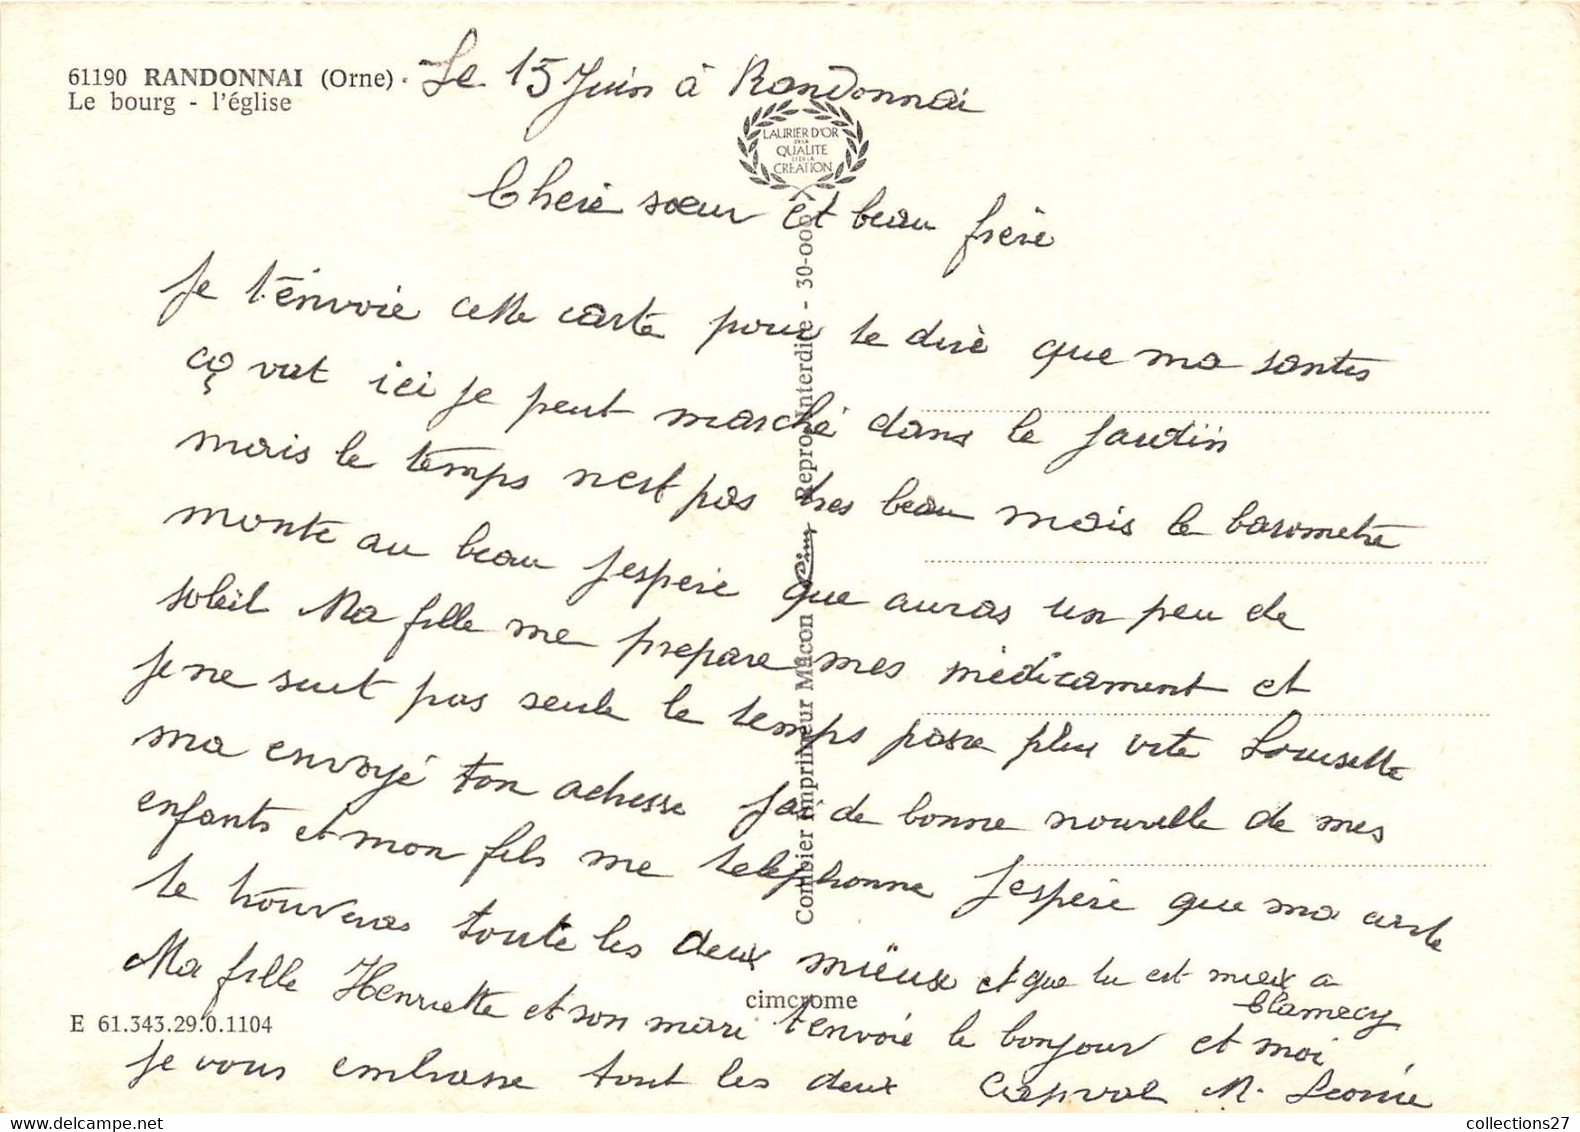 61190 RANDONNAI (Orne)
Le bourg - l'église
Le 15 Juin à Randonnai
LAURIER D'OR
DE LA
QUALITE
ET DE LA
CREATION
Cherie sœur et beau frère
Je t'envoie cette carte pour te dire que ma santes
ça vat ici je peut marché dans le jardin
mais le temps n'est pas tres beau mais le barometre
monte au beau J'espere que auras un peu de
soleil Ma fille me prepare mes médicament et
je ne suit pas seule le temps passe plus vite Louisette
ma envoyé ton adresse J'ai de bonne nouvelle de mes
enfants et mon fils me telephonne J'espère que ma carte
te trouveras toute les deux mieux et que tu est mieux a
Clamecy
Ma fille Henriette et son mari t'envoie le bonjour et moi
je vous embrasse tout les deux M. Leonie
Combier Imprimeur Macon Cim Repro. Interdite - 30-000
cimcrome
E 61.343.29.0.1104
collections27